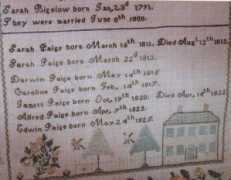 Sarah Bigelow born Jan, 23d 1791.
They were married June 8th 1809.
Sarah Paige born March 16th, 1811. Died Aug 13th 1812.
Sarah Paige born March 22d 1813.
Darwin Paige born May 14th 1815
Caroline Paige born Feb, 14th 1817.
James Paige born Oct, 19th 1820. Died Nov, 14th 1822.
Alfred Paige born Apr, 9th 1823. Died Apr, 1823.
Edwin Paige born May 24th 1825.